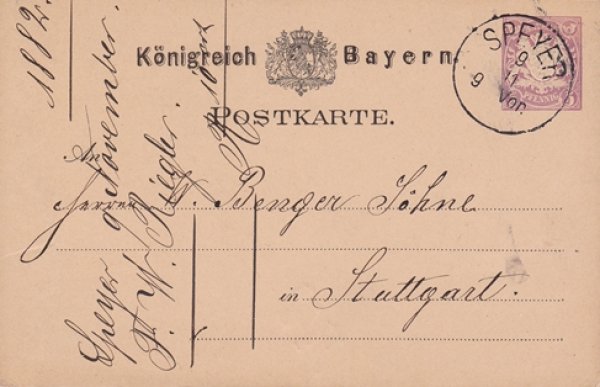 Königreich Bayern.
POSTKARTE.
SPEYER
9
11
9 Vor.
PFENNIG
An
Herren W. Benger Söhne
in Stuttgart.
1882.
Speyer 9 November.
F. W. Riegler.